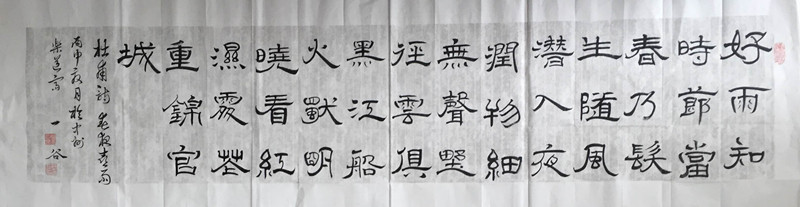 好雨知
時節當
春乃發
生隨風
潛入夜
潤物細
無聲野
徑雲俱
黑江船
火獨明
曉看紅
濕處花
重錦官
城
杜甫詩春夜喜雨
丙申月於州
樂道齋 一谷